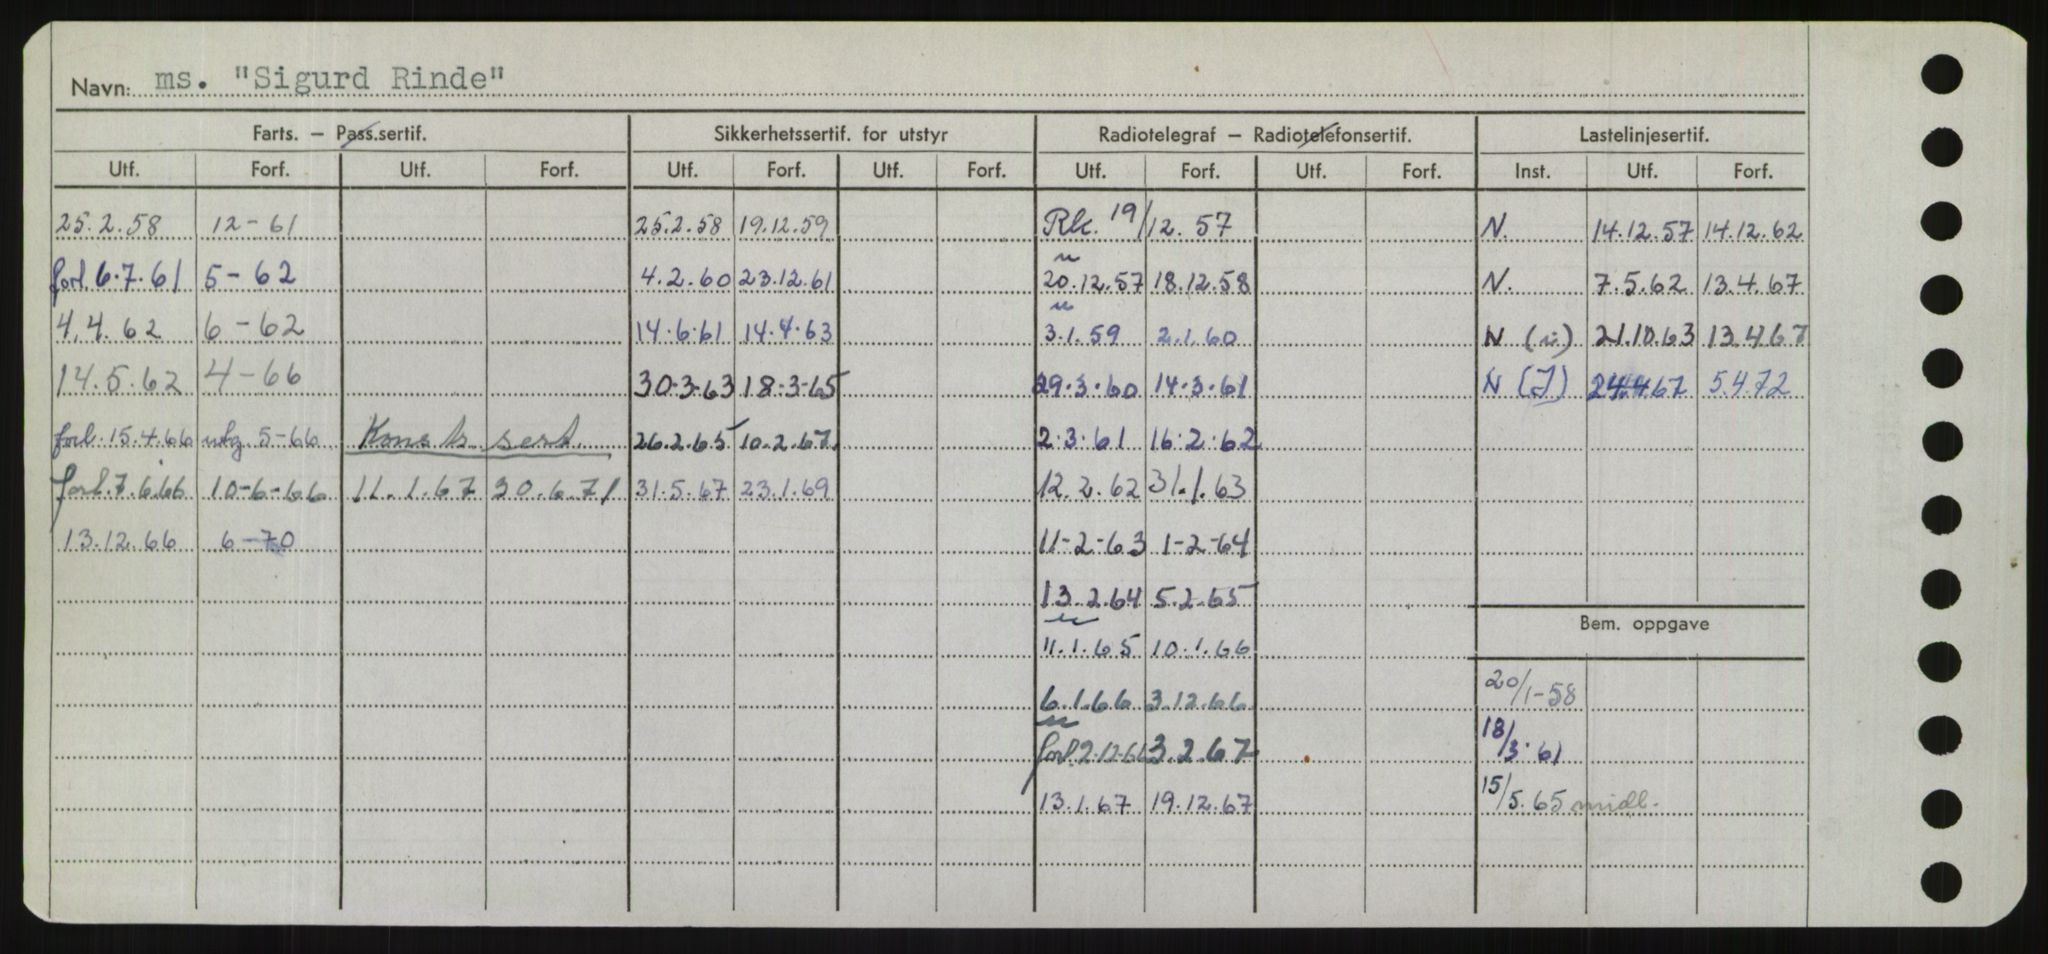 Navn: ms. "Sigurd Rinde"
Farts. – Pass.sertif. Sikkerhetssertif. for utstyr Radiotelegraf – Radiotelefonsertif. Lastelinjesertif.
Utf. Forf. Utf. Forf. Utf. Forf. Utf. Forf. Utf. Forf. Utf. Forf. Inst. Utf. Forf.
25.2.58 12-61 25.2.58 19.12.59 19/12.57 N. 14.12.57 14.12.62
forl. 6.7.61 5-62 4.2.60 23.12.61 20.12.57 18.12.58 N. 7.5.62 13.4.67
4.4.62 6-62 14.6.61 14.4.63 3.1.59 2.1.60 N 21.10.63 13.4.67
14.5.62 4-66 30.3.63 18.3.65 29.3.60 14.3.61 N (J) 67 5.4.72
forl. 15.4.66 utg. 5-66 sert. 26.2.65 10.2.67 2.3.61 16.2.62
forl. 7.6.66 10-6-66 11.1.67 30.6.71 31.5.67 23.1.69 12.2.62 31.1.63
13.12.66 6-70 11-2-63 1-2-64
13.2.64 5.2.65
Bem. oppgave
11.1.65 10.1.66
6.1.66 3.12.66 20/1-58
forl. 2.12.66 3.2.67 18/3.61
13.1.67 19.12.67 15/5.65 midl.